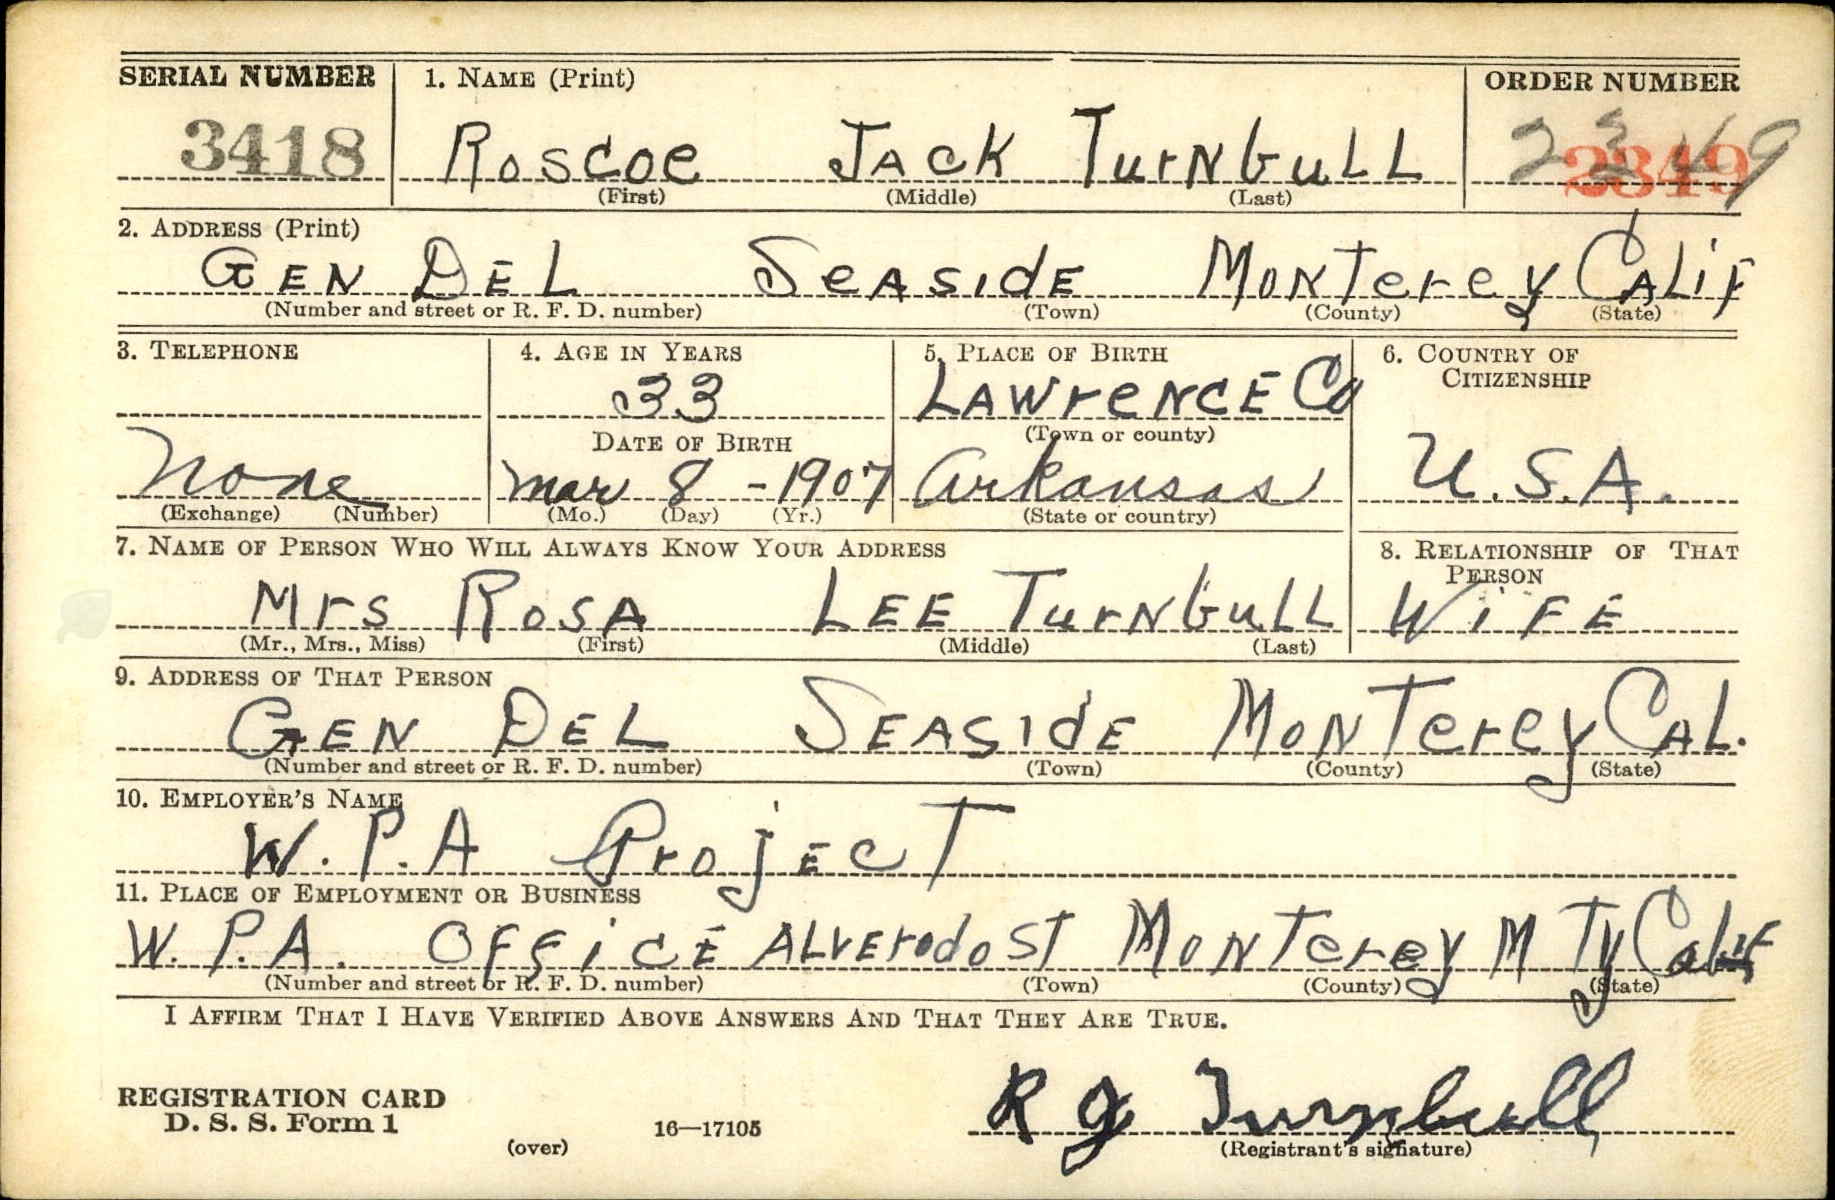 SERIAL NUMBER 1. NAME (Print) ORDER NUMBER
3418 ROSCOE JACK TURNBULL 2349 2349
(First) (Middle) (Last)
2. ADDRESS (Print)
GEN DEL SEASIDE MONTEREY CALIF
(Number and street or R. F. D. number) (Town) (County) (State)
3. TELEPHONE 4. AGE IN YEARS 5. PLACE OF BIRTH 6. COUNTRY OF
CITIZENSHIP
33 LAWRENCE CO
DATE OF BIRTH (Town or county)
None Mar 8 - 1907 Arkansas U.S.A.
(Exchange) (Number) (Mo.) (Day) (Yr.) (State or country)
7. NAME OF PERSON WHO WILL ALWAYS KNOW YOUR ADDRESS 8. RELATIONSHIP OF THAT
PERSON
Mrs ROSA LEE TURNBULL WIFE
(Mr., Mrs., Miss) (First) (Middle) (Last)
9. ADDRESS OF THAT PERSON
GEN DEL SEASIDE MONTEREY CAL.
(Number and street or R. F. D. number) (Town) (County) (State)
10. EMPLOYER'S NAME
W.P.A PROJECT
11. PLACE OF EMPLOYMENT OR BUSINESS
W.P.A. OFFICE ALVERODO ST MONTEREY MTY Calif
(Number and street or R. F. D. number) (Town) (County) (State)
I AFFIRM THAT I HAVE VERIFIED ABOVE ANSWERS AND THAT THEY ARE TRUE.
REGISTRATION CARD
D. S. S. Form 1 R J Turnbull
(over) 16—17105 (Registrant's signature)